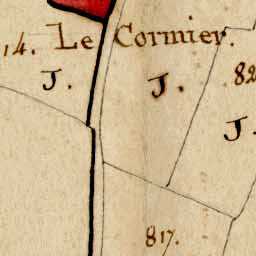 14. Le Cormier.
J. J. 82
J.
817.